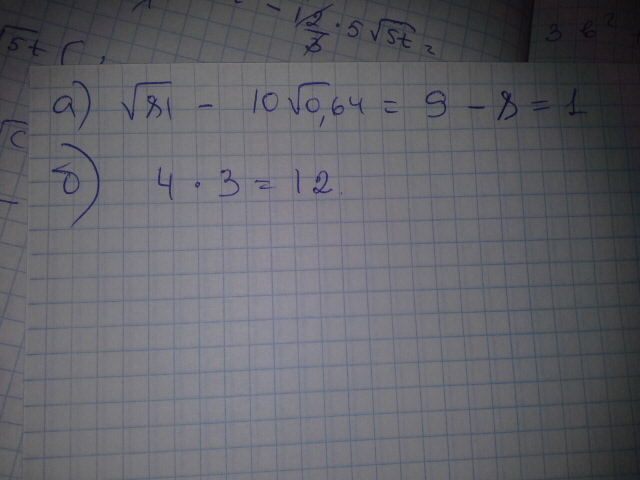 √2/3 · 5√5t =
3 в²
√5t
а) √81 - 10√0,64 = 9 - 8 = 1
б) 4 · 3 = 12.